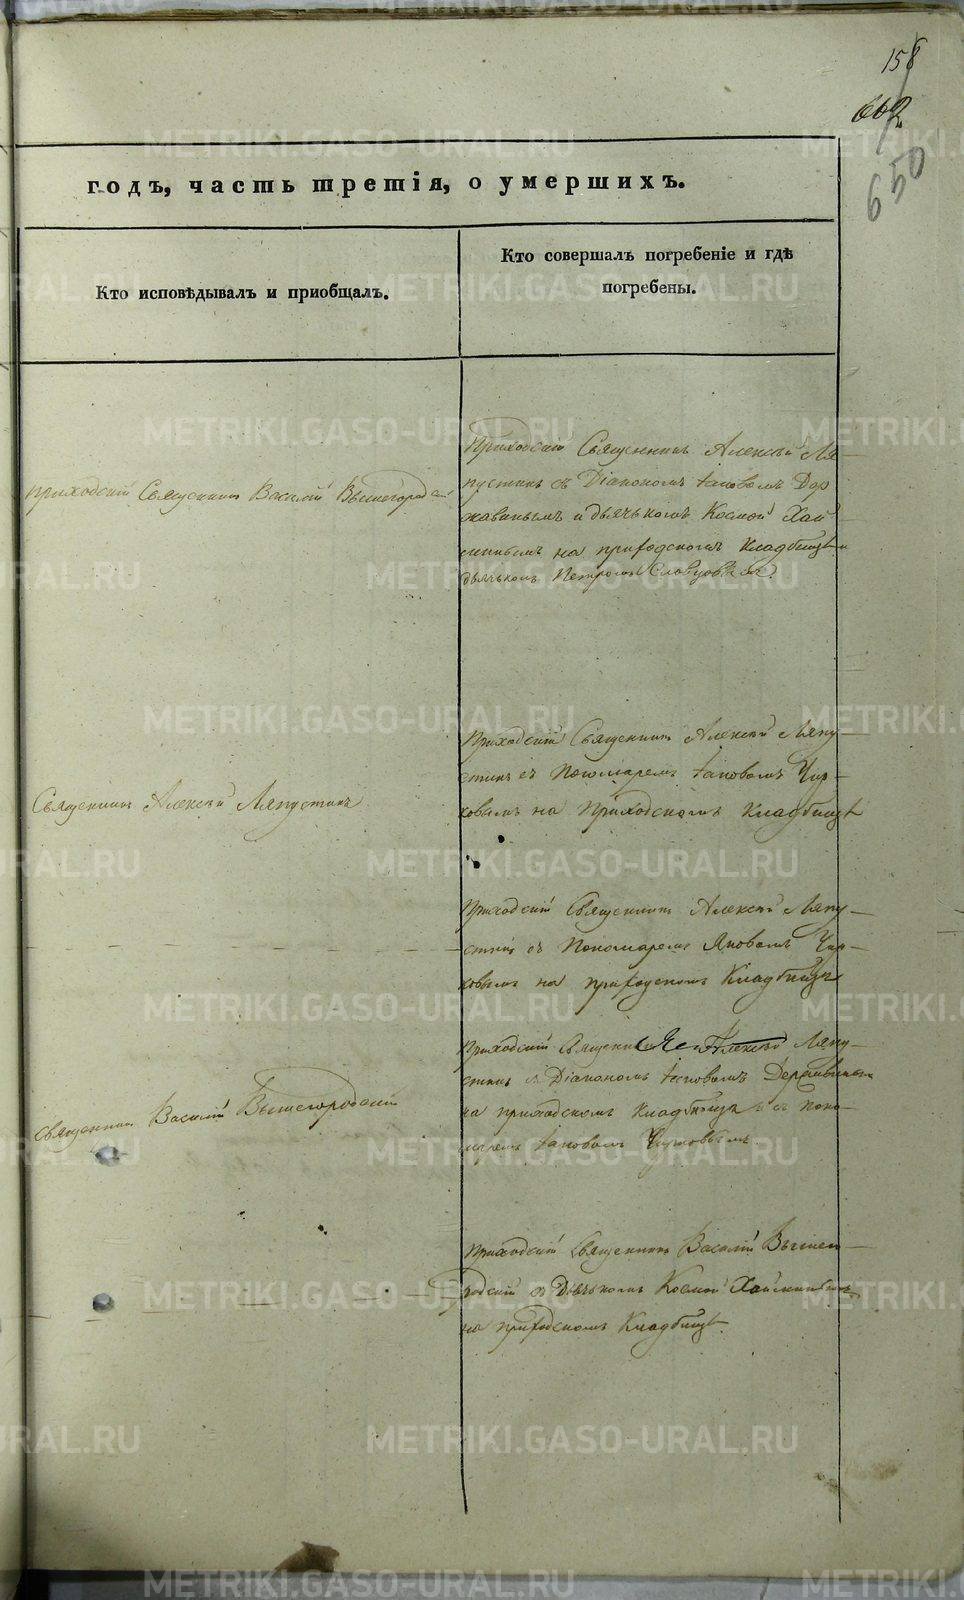 158
602
650
годъ, часть третія, о умершихъ.
Кто исповѣдывалъ и приобщалъ.
Кто совершалъ погребеніе и гдѣ
погребены.
приходскій Священникъ Василій Вышегородскій
Приходскій Священникъ Алексѣй Ля-
пустинъ съ Діакономъ Іаковомъ Дер
жавинымъ и дьячькомъ Космой Хай-
на приходскомъ кладбищѣ и
дьячькомъ Петромъ Словцовымъ
Священникъ Алексѣй Ляпустинъ
Приходскій Священникъ Алексѣй Ляпу-
стинъ съ Пономаремъ Іаковомъ Чир-
ковымъ на Приходскомъ кладбищѣ
Приходскій Священникъ Алексѣй Ляпу-
стинъ съ Пономаремъ Яковомъ Чир-
ковымъ на приходскомъ Кладбищѣ
Священникъ Василій Вышегородскій
Приходскій Священникъ Алексѣй Ляпу-
стинъ съ Діакономъ Іаковомъ Державинымъ
на приходскомъ кладбищѣ и съ Поно-
маремъ Іаковомъ Чирковымъ.
Приходскій Священникъ Василій Вышего-
родскій съ Дьячькомъ Космой
на приходскомъ Кладбищѣ.
METRIKI.GASO-URAL.RU